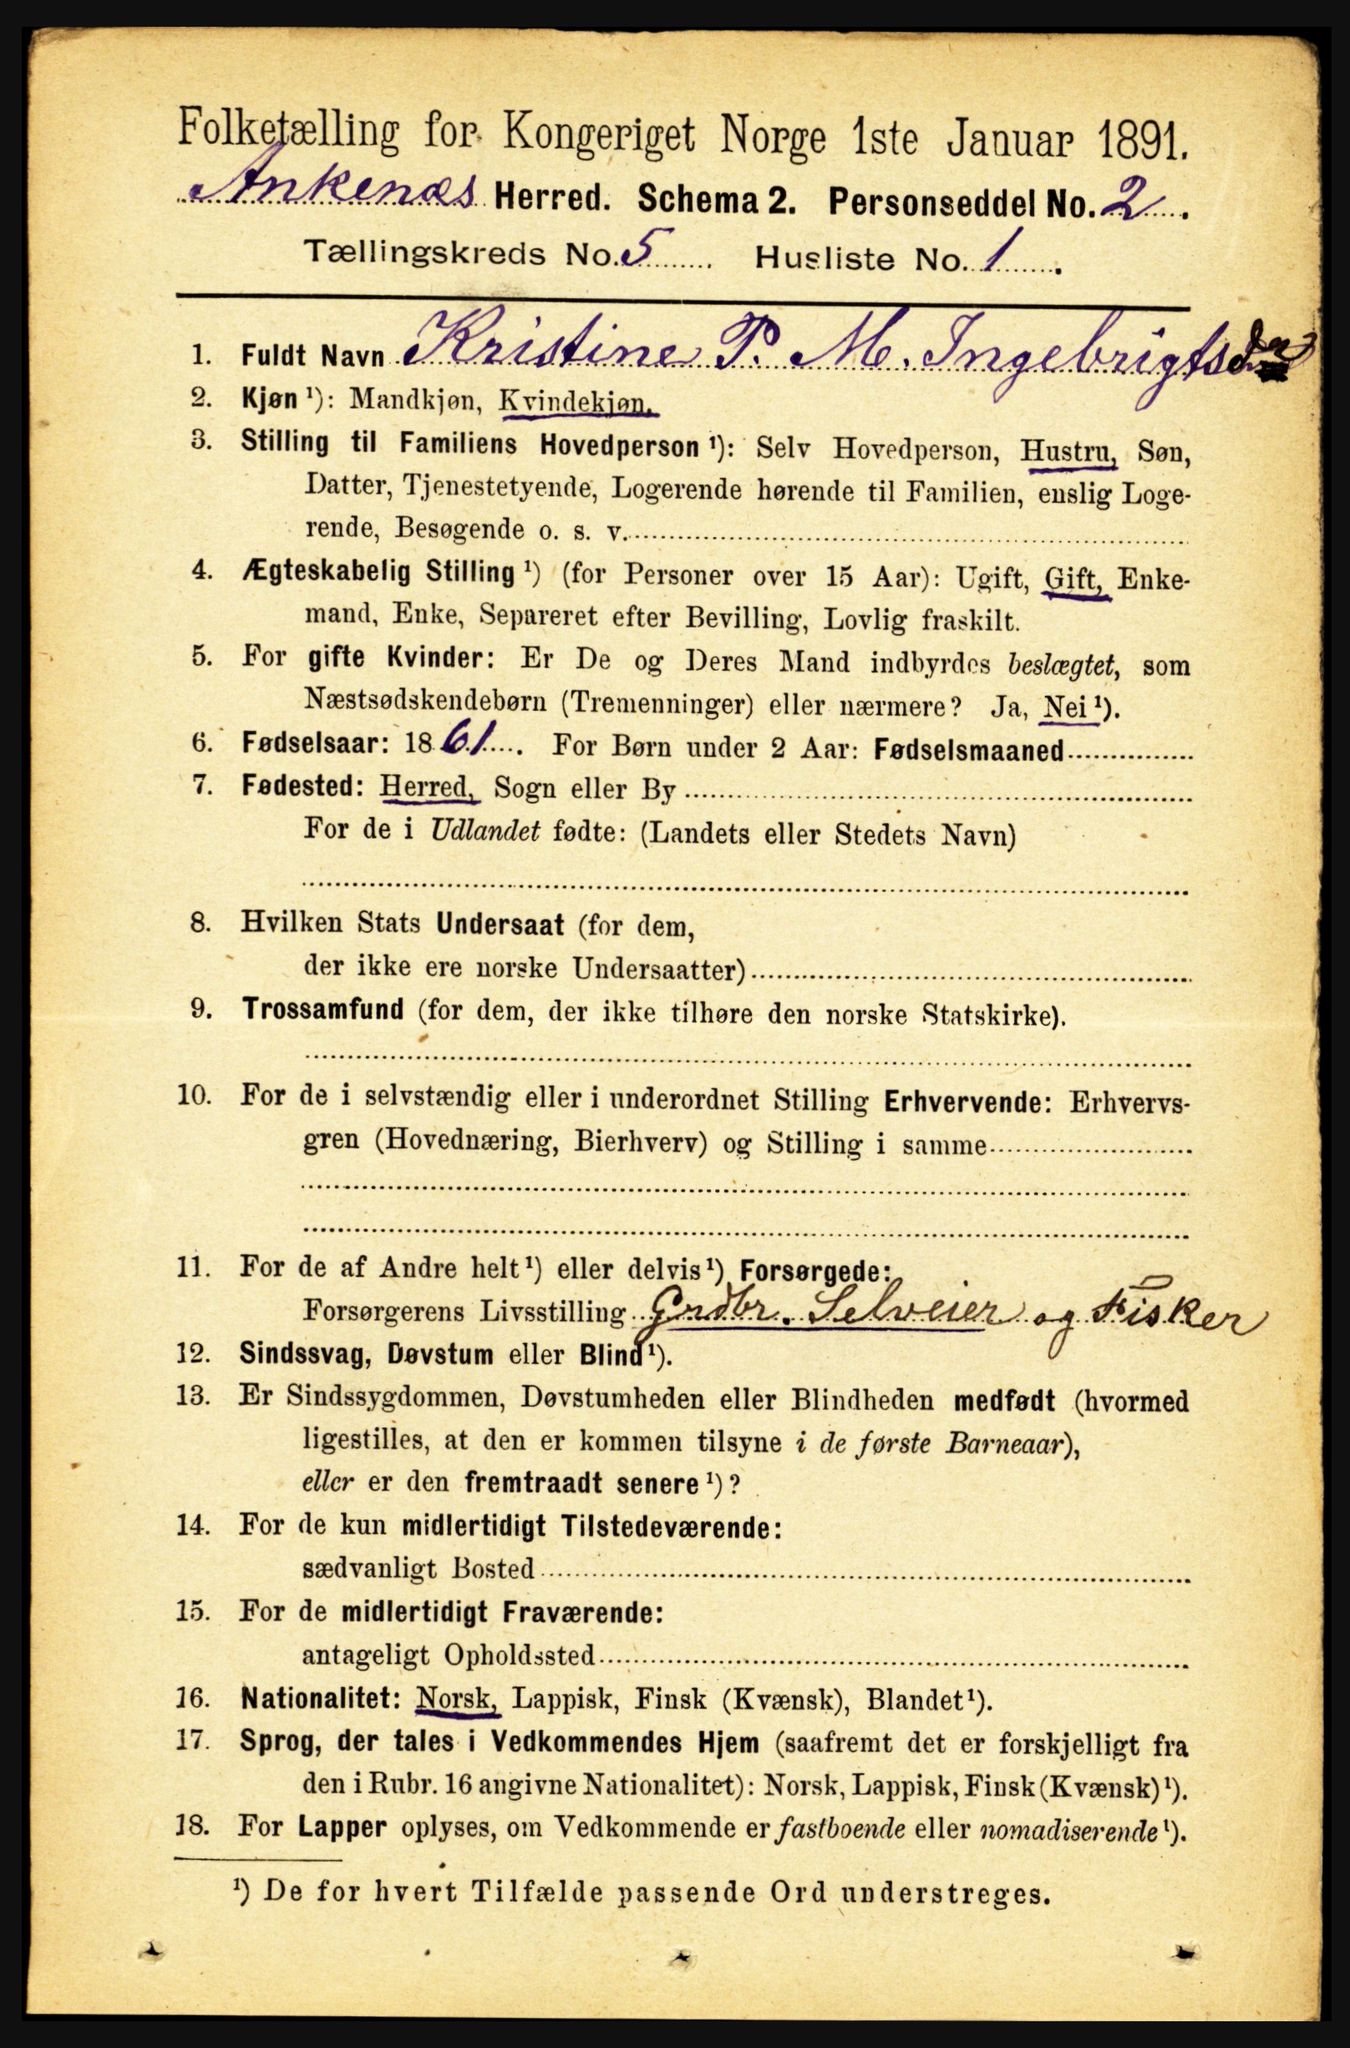 Folketælling for Kongeriget Norge 1ste Januar 1891.
Ankenæs Herred. Schema 2. Personseddel No. 2.
Tællingskreds No. 5 Husliste No. 1.
1. Fuldt Navn Kristine P. M. Ingebrigtsdr
2. Kjøn ¹): Mandkjøn, Kvindekjøn.
3. Stilling til Familiens Hovedperson ¹): Selv Hovedperson, Hustru, Søn,
Datter, Tjenestetyende, Logerende hørende til Familien, enslig Loge-
rende, Besøgende o. s. v.
4. Ægteskabelig Stilling ¹) (for Personer over 15 Aar): Ugift, Gift, Enke-
mand, Enke, Separeret efter Bevilling, Lovlig fraskilt.
5. For gifte Kvinder: Er De og Deres Mand indbyrdes beslægtet, som
Næstsødskendebørn (Tremenninger) eller nærmere? Ja, Nei ¹).
6. Fødselsaar: 1861. For Børn under 2 Aar: Fødselsmaaned
7. Fødested: Herred, Sogn eller By
For de i Udlandet fødte: (Landets eller Stedets Navn)
8. Hvilken Stats Undersaat (for dem,
der ikke ere norske Undersaatter)
9. Trossamfund (for dem, der ikke tilhøre den norske Statskirke).
10. For de i selvstændig eller i underordnet Stilling Erhvervende: Erhvervs-
gren (Hovednæring, Bierhverv) og Stilling i samme
11. For de af Andre helt ¹) eller delvis ¹) Forsørgede:
Forsørgerens Livsstilling Grdbr. Selveier og Fisker
12. Sindssvag, Døvstum eller Blind ¹).
13. Er Sindssygdommen, Døvstumheden eller Blindheden medfødt (hvormed
ligestilles, at den er kommen tilsyne i de første Barneaar),
eller er den fremtraadt senere ¹)?
14. For de kun midlertidigt Tilstedeværende:
sædvanligt Bosted
15. For de midlertidigt Fraværende:
antageligt Opholdssted
16. Nationalitet: Norsk, Lappisk, Finsk (Kvænsk), Blandet ¹).
17. Sprog, der tales i Vedkommendes Hjem (saafremt det er forskjelligt fra
den i Rubr. 16 angivne Nationalitet): Norsk, Lappisk, Finsk (Kvænsk) ¹).
18. For Lapper oplyses, om Vedkommende er fastboende eller nomadiserende ¹).
¹) De for hvert Tilfælde passende Ord understreges.